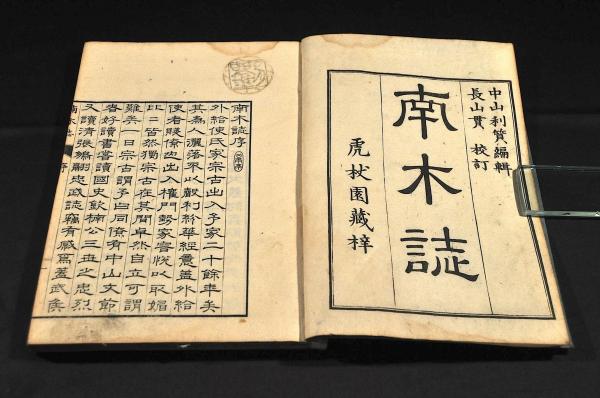 中山利質編輯
長山貫 校訂
南木誌
虎杖園藏梓
南木誌序
外給使氏家宗古出入予家二十餘年矣
其為人灑落不以利紛華經意蓋外給
使者賤僚也出入權門勢家容悅以取媚
比比皆然獨宗古在其間卓然自立可謂
難矣一日宗古謂予曰同僚有中山文節
者好讀書嘗讀國史欽楠公三世之忠烈
又讀清張鵬翮忠武誌竊有感焉蓋武侯
南木誌 序